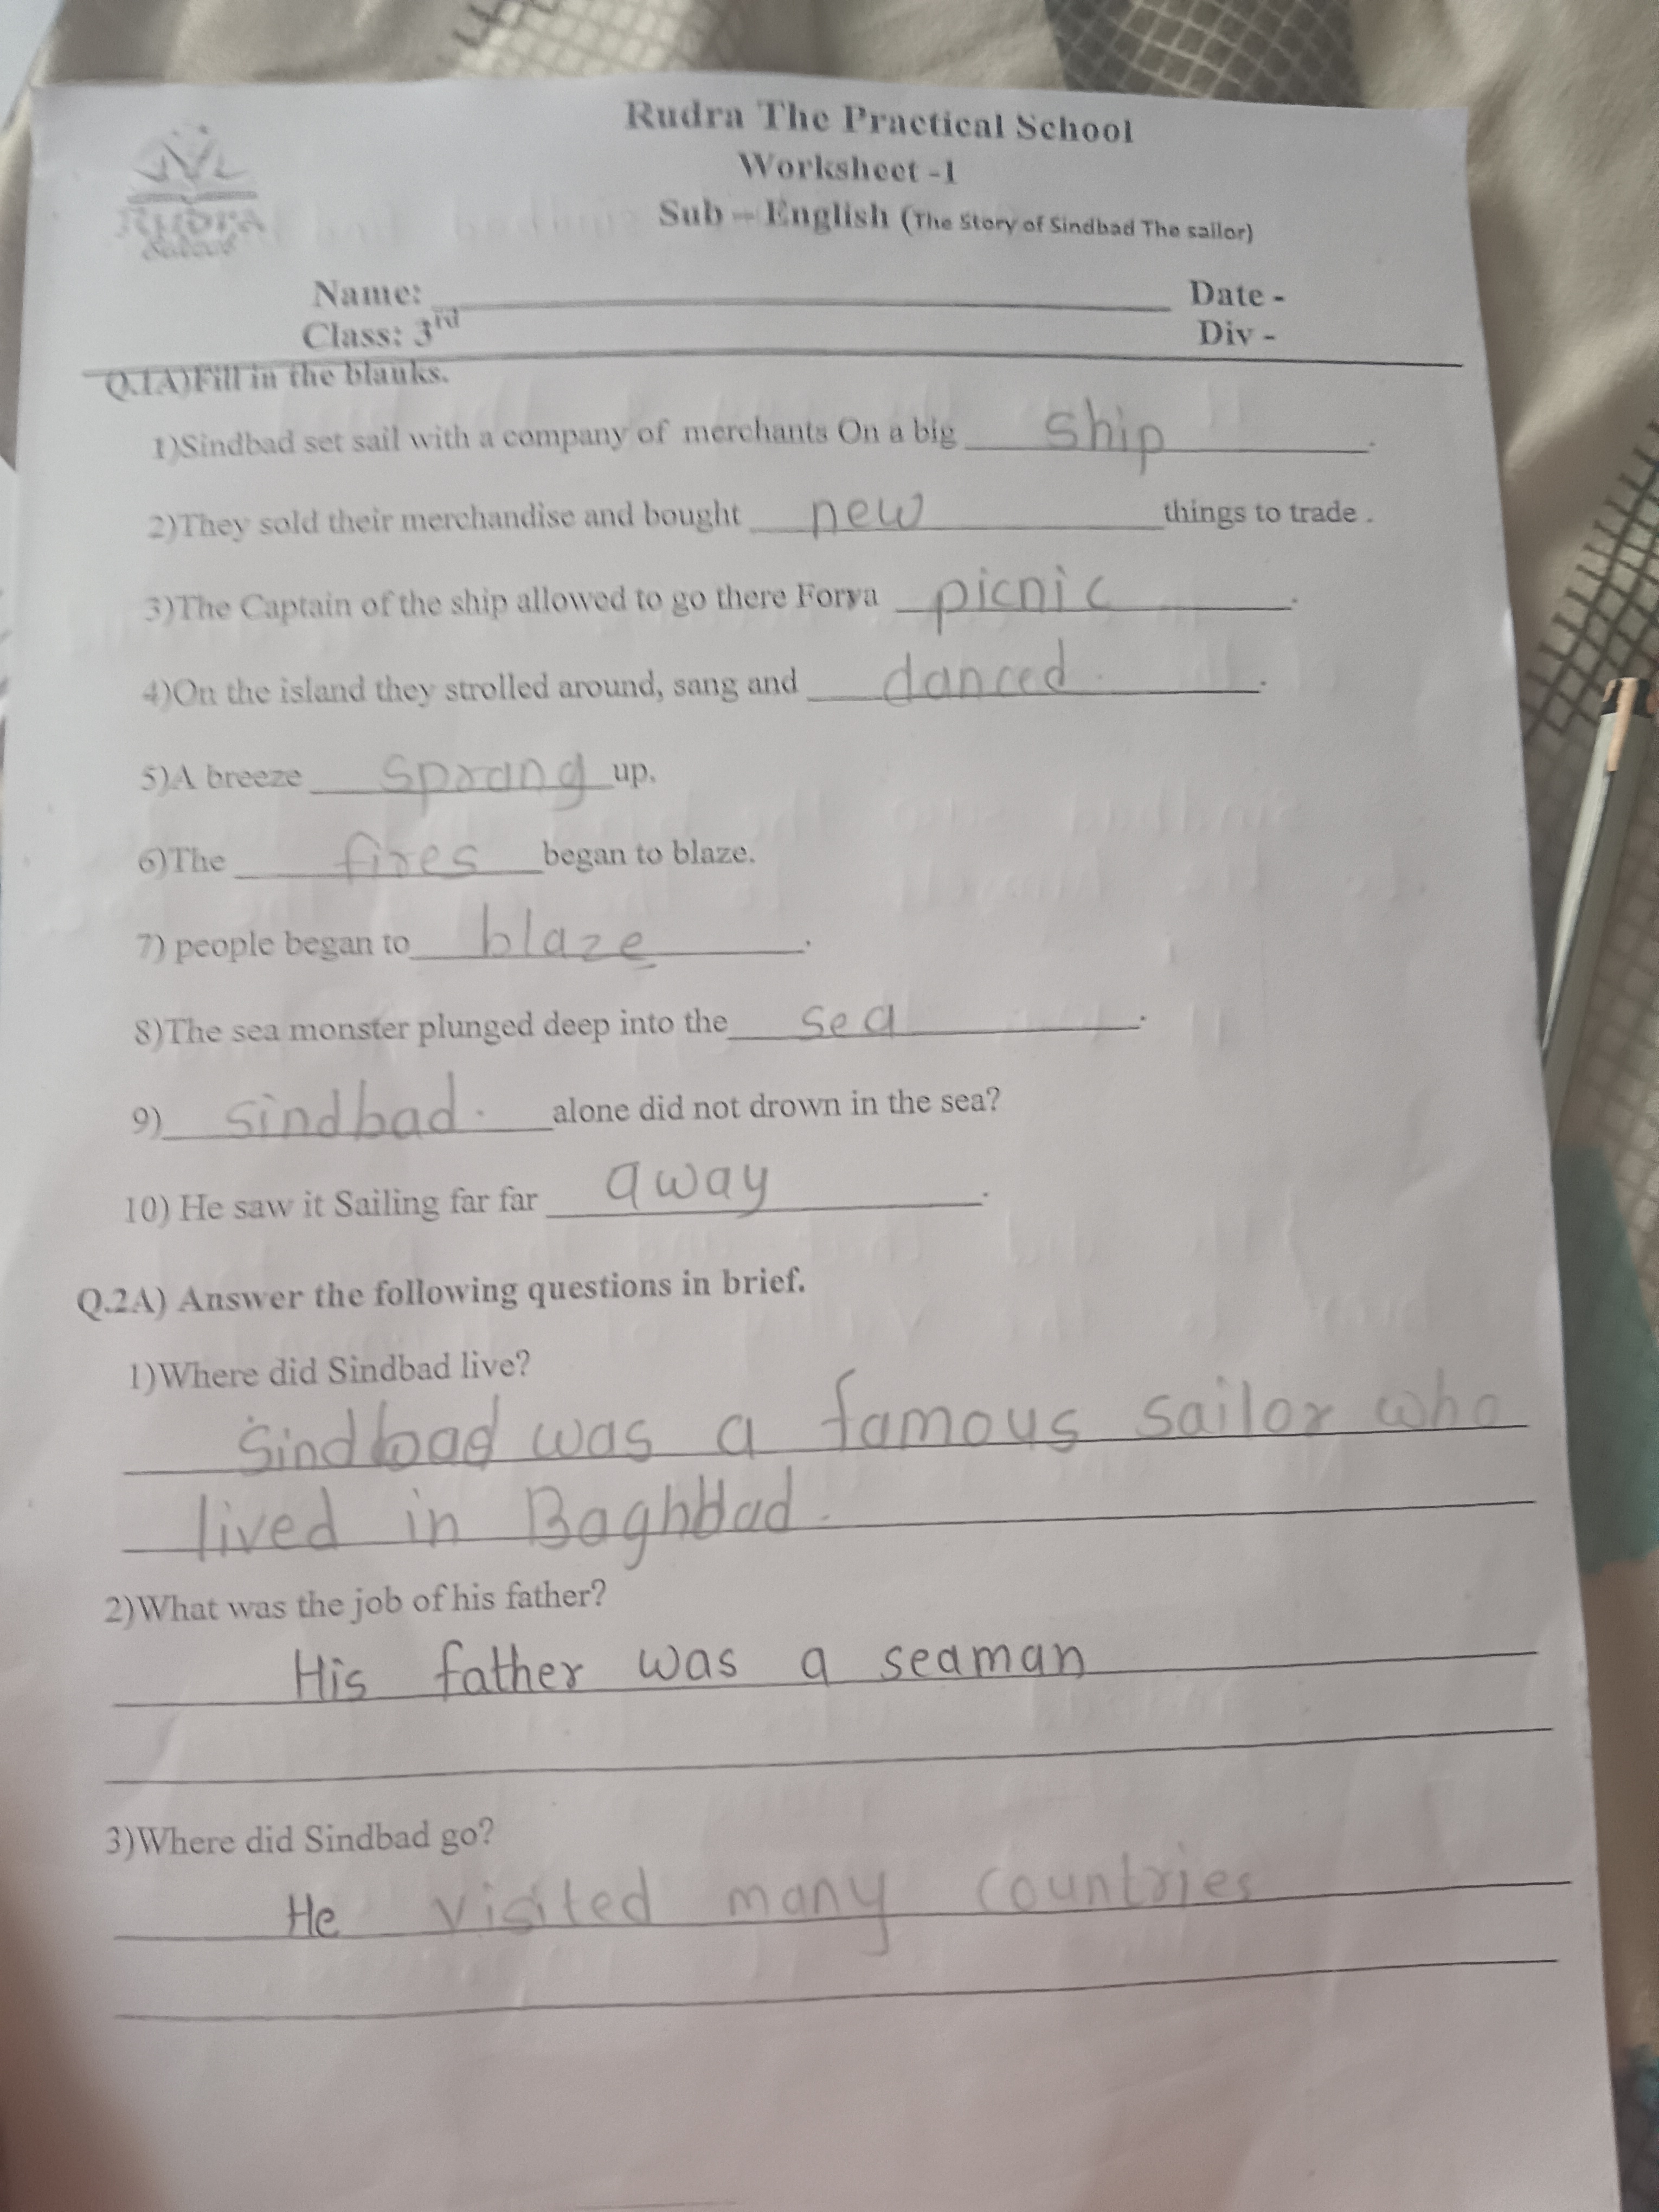 Rudra The Practical School
Worksheet -1
Sub – English (The Story of Sindbad The sailor)
Rudra
School
Name: ____________ Date -
Class: 3rd Div -
Q.1A)Fill in the blanks.
1)Sindbad set sail with a company of merchants On a big ship.
2)They sold their merchandise and bought new things to trade .
3)The Captain of the ship allowed to go there Forya picnic.
4)On the island they strolled around, sang and danced.
5)A breeze sprang up.
6)The fires began to blaze.
7) people began to blaze.
8)The sea monster plunged deep into the sea.
9) sindbad. alone did not drown in the sea?
10) He saw it Sailing far far away.
Q.2A) Answer the following questions in brief.
1)Where did Sindbad live?
Sindbad was a famous sailor who
lived in Baghdad.
2)What was the job of his father?
His father was a seaman
3)Where did Sindbad go?
He visited many countries